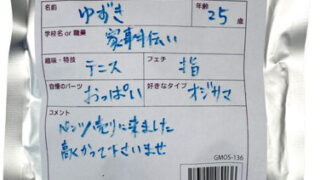 名前 ゆずき 年齢 25 歳
学校名 or 職業 家事手伝い
趣味・特技 テニス フェチ 指
自慢のパーツ おっぱい 好きなタイプ オジサマ
コメント
パンツ売りに来ました
高くかって下さいませ
GMOS-136